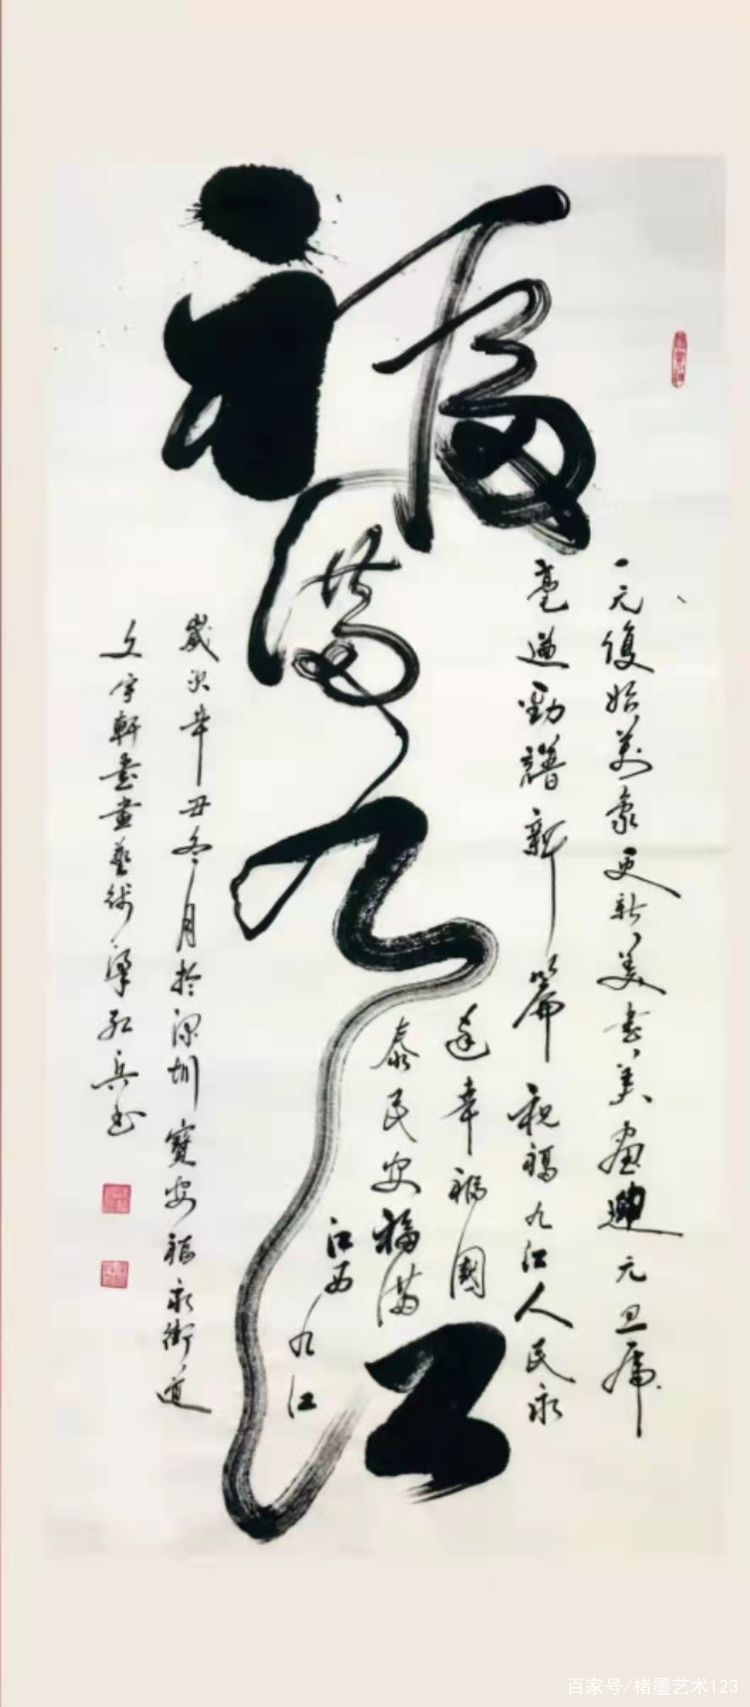 福满九江
一元復始萬象更新美书美画迎元旦虎
毫遒勁譜新篇祝福九江人民永
远幸福國
泰民安福满
江西
九江
歲次辛丑冬月於深圳寶安福永街道
文宇軒書畫藝術梁红兵书
百家号/楮墨艺术123